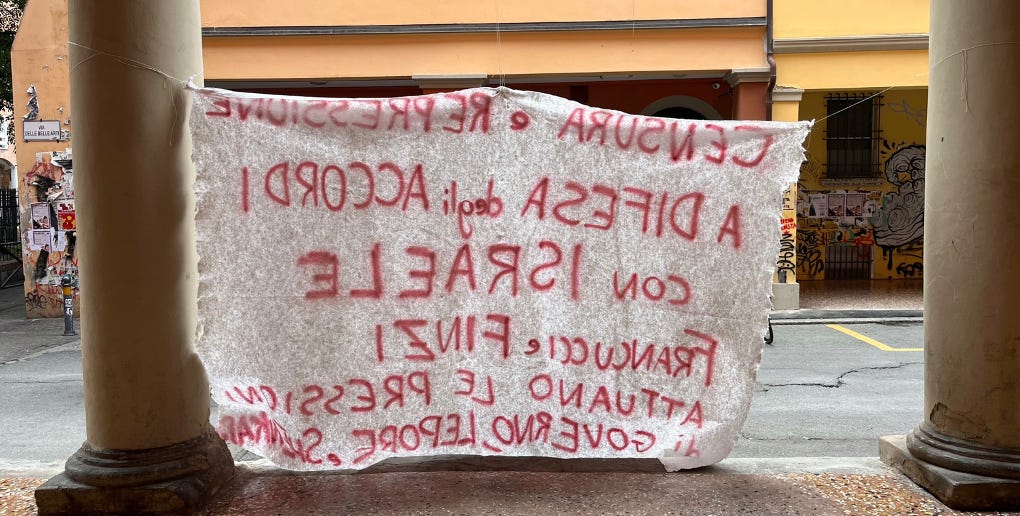 VIA
DELLE BELLE ARTI
CENSURA e REPRESSIONE
A DIFESA degli ACCORDI
con ISRAELE
FRANCUCCI e FINZI
ATTUANO LE PRESSIONI
di GOVERNO, LEPORE,